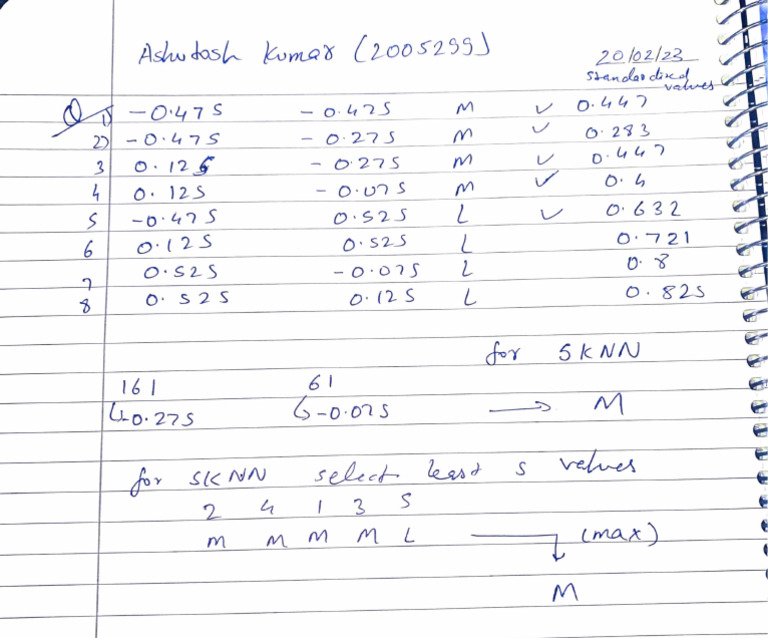 Ashutosh Kumar (2005299)
20/02/23
standardized values
Q 1) -0.475 -0.475 M ✓ 0.447
2) -0.475 -0.275 M ✓ 0.283
3 0.125 -0.275 M ✓ 0.447
4 0.125 -0.075 M ✓ 0.4
5 -0.475 0.525 L ✓ 0.632
6 0.125 0.525 L 0.721
7 0.525 -0.075 L 0.8
8 0.525 0.125 L 0.825
for 5KNN
161 61
↳-0.275 ↳-0.075 → M
for 5KNN select least 5 values
2 4 1 3 5
M M M M L → (max)
M